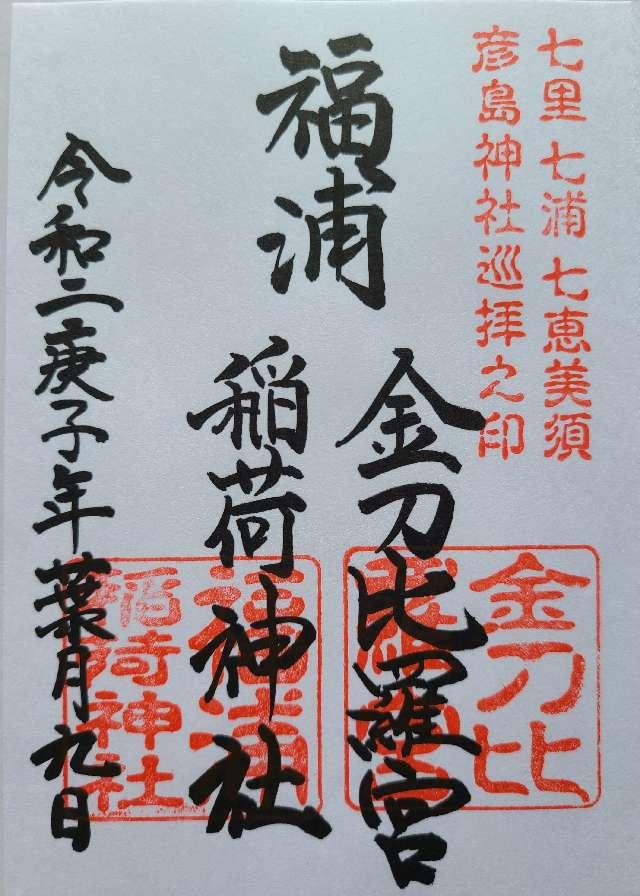 七里七浦七恵美須
彦島神社巡拝之印
福浦
金刀比羅宮
稲荷神社
令和二庚子年葉月九日
金刀比
福浦
稲荷神社